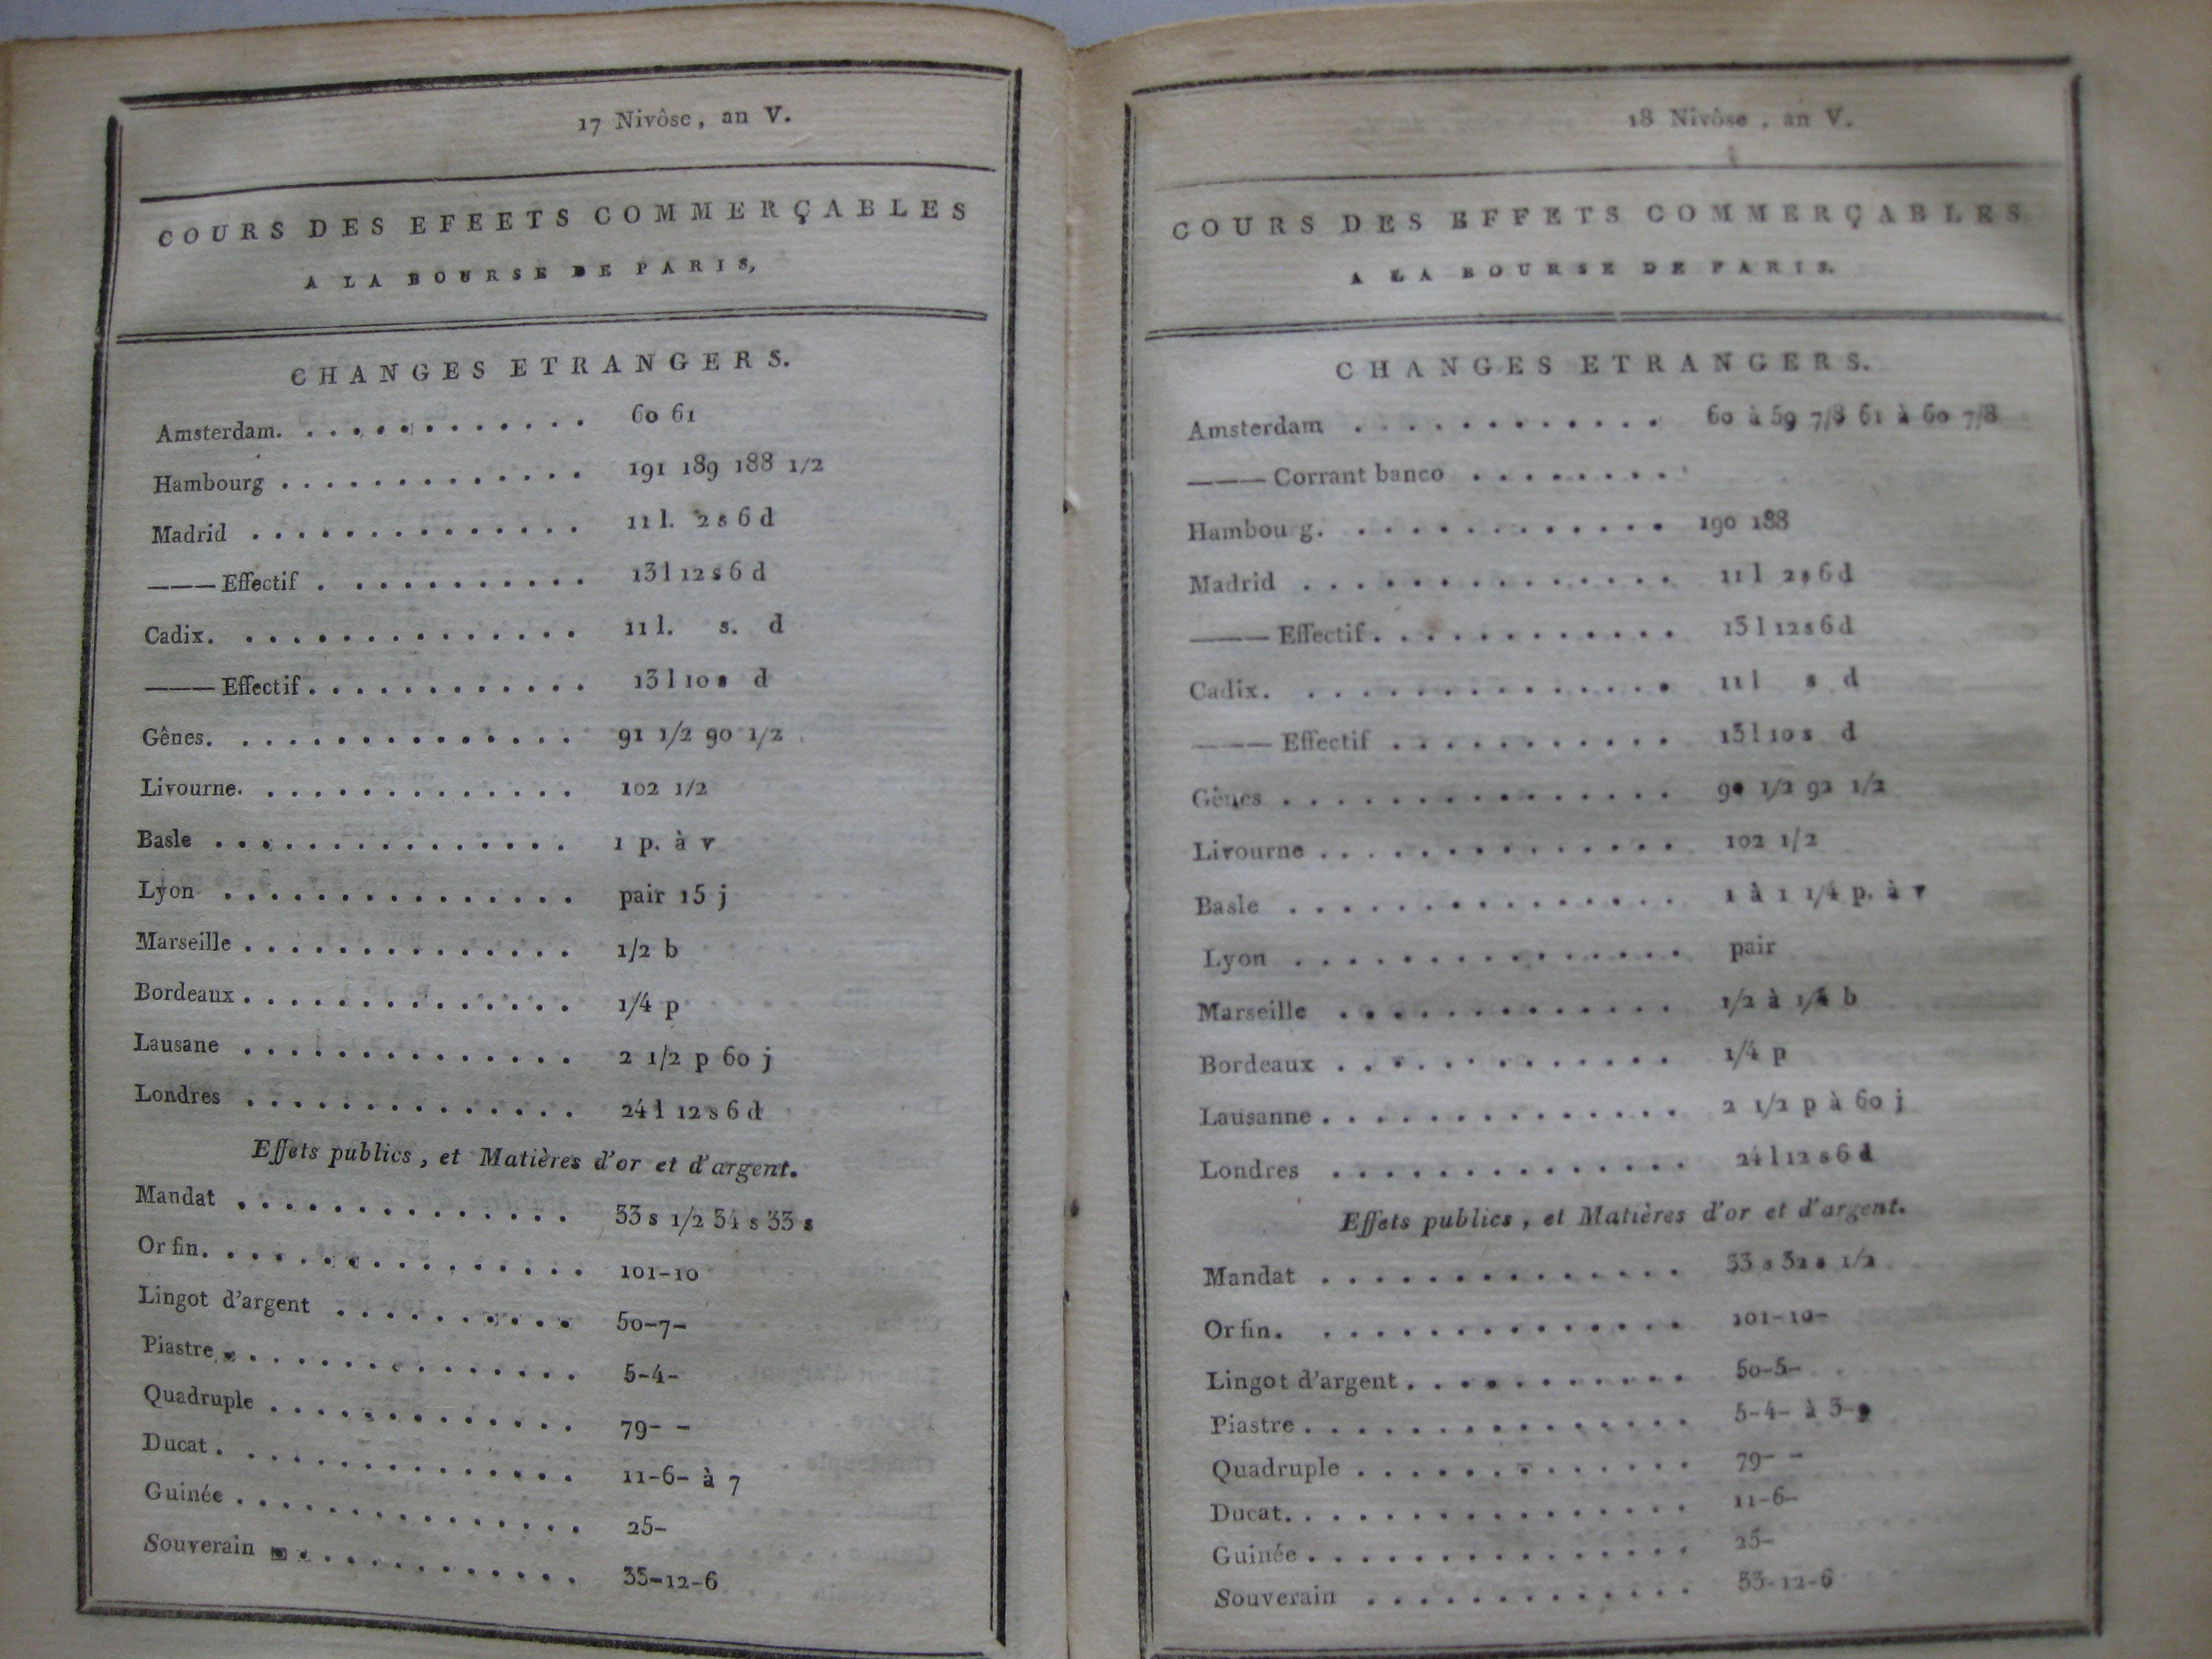 17 Nivôse, an V.
COURS DES EFEETS COMMERÇABLES
A LA BOURSE DE PARIS,
CHANGES ETRANGERS.
Amsterdam. . . . . . . . . . . . . 60 61
Hambourg . . . . . . . . . . . . . 191 189 188 1/2
Madrid . . . . . . . . . . . . . . 11 l. 2 s 6 d
——— Effectif . . . . . . . . . . . 13 l 12 s 6 d
Cadix. . . . . . . . . . . . . . . 11 l. s. d
——— Effectif . . . . . . . . . . . . 13 l 10 s d
Gênes. . . . . . . . . . . . . . . 91 1/2 90 1/2
Livourne. . . . . . . . . . . . . . 102 1/2
Basle . . . . . . . . . . . . . . . 1 p. à v
Lyon . . . . . . . . . . . . . . . pair 15 j
Marseille . . . . . . . . . . . . . . 1/2 b
Bordeaux . . . . . . . . . . . . . . 1/4 p
Lausane . . . . . . . . . . . . . . 2 1/2 p 60 j
Londres . . . . . . . . . . . . . . 24 l 12 s 6 d
Effets publics, et Matières d'or et d'argent.
Mandat . . . . . . . . . . . . . . 33 s 1/2 34 s 33 s
Or fin. . . . . . . . . . . . . . . . 101-10
Lingot d'argent . . . . . . . . . . 50-7-
Piastre . . . . . . . . . . . . . . . 5-4-
Quadruple . . . . . . . . . . . . . 79- -
Ducat . . . . . . . . . . . . . . . 11-6- à 7
Guinée . . . . . . . . . . . . . . . 25-
Souverain . . . . . . . . . . . . 33-12-6
18 Nivôse, an V.
COURS DES EFFETS COMMERÇABLES
A LA BOURSE DE PARIS.
CHANGES ETRANGERS.
Amsterdam . . . . . . . . . . . . 60 à 59 7/8 61 à 60 7/8
——— Corrant banco . . . . . . . .
Hambou g. . . . . . . . . . . . . 190 188
Madrid . . . . . . . . . . . . . . 11 l 2 s 6 d
——— Effectif . . . . . . . . . . . . 13 l 12 s 6 d
Cadix. . . . . . . . . . . . . . . 11 l s d
——— Effectif . . . . . . . . . . . 13 l 10 s d
Gênes . . . . . . . . . . . . . . . 1/2 92 1/2
Livourne . . . . . . . . . . . . . . 102 1/2
Basle . . . . . . . . . . . . . . . 1 à 1 1/4 p. à v
Lyon . . . . . . . . . . . . . . . pair
Marseille . . . . . . . . . . . . . 1/2 à 1/4 b
Bordeaux . . . . . . . . . . . . . 1/4 p
Lausanne . . . . . . . . . . . . . . 2 1/2 p à 60 j
Londres . . . . . . . . . . . . . . 24 l 12 s 6 d
Effets publics, et Matières d'or et d'argent.
Mandat . . . . . . . . . . . . . . 33 s 32 s 1/2
Or fin. . . . . . . . . . . . . . . 101-10-
Lingot d'argent . . . . . . . . . . . 50-5-
Piastre . . . . . . . . . . . . . . . 5-4- à 3-
Quadruple . . . . . . . . . . . . . 79- -
Ducat. . . . . . . . . . . . . . . . 11-6-
Guinée . . . . . . . . . . . . . . . 25-
Souverain . . . . . . . . . . . . . 33-12-6